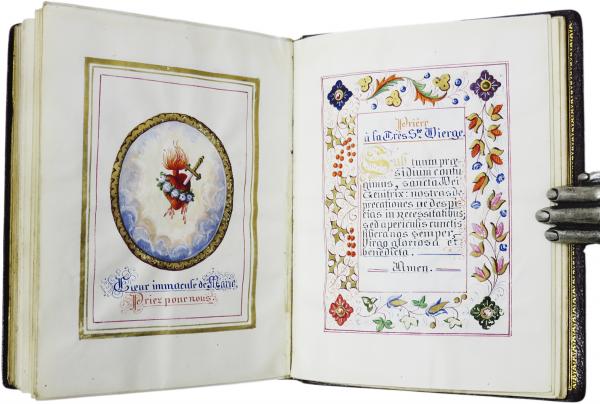 Cœur immaculé de Marie,
Priez pour nous.
Prière
à la Très Ste Vierge.
Sub tuum præ-
sidium confu-
gimus, sancta Dei
Genitrix: nostras de-
precationes ne despi-
cias in necessitatibus,
sed a periculis cunctis
libera nos semper
Virgo gloriosa et
benedicta.
Amen.